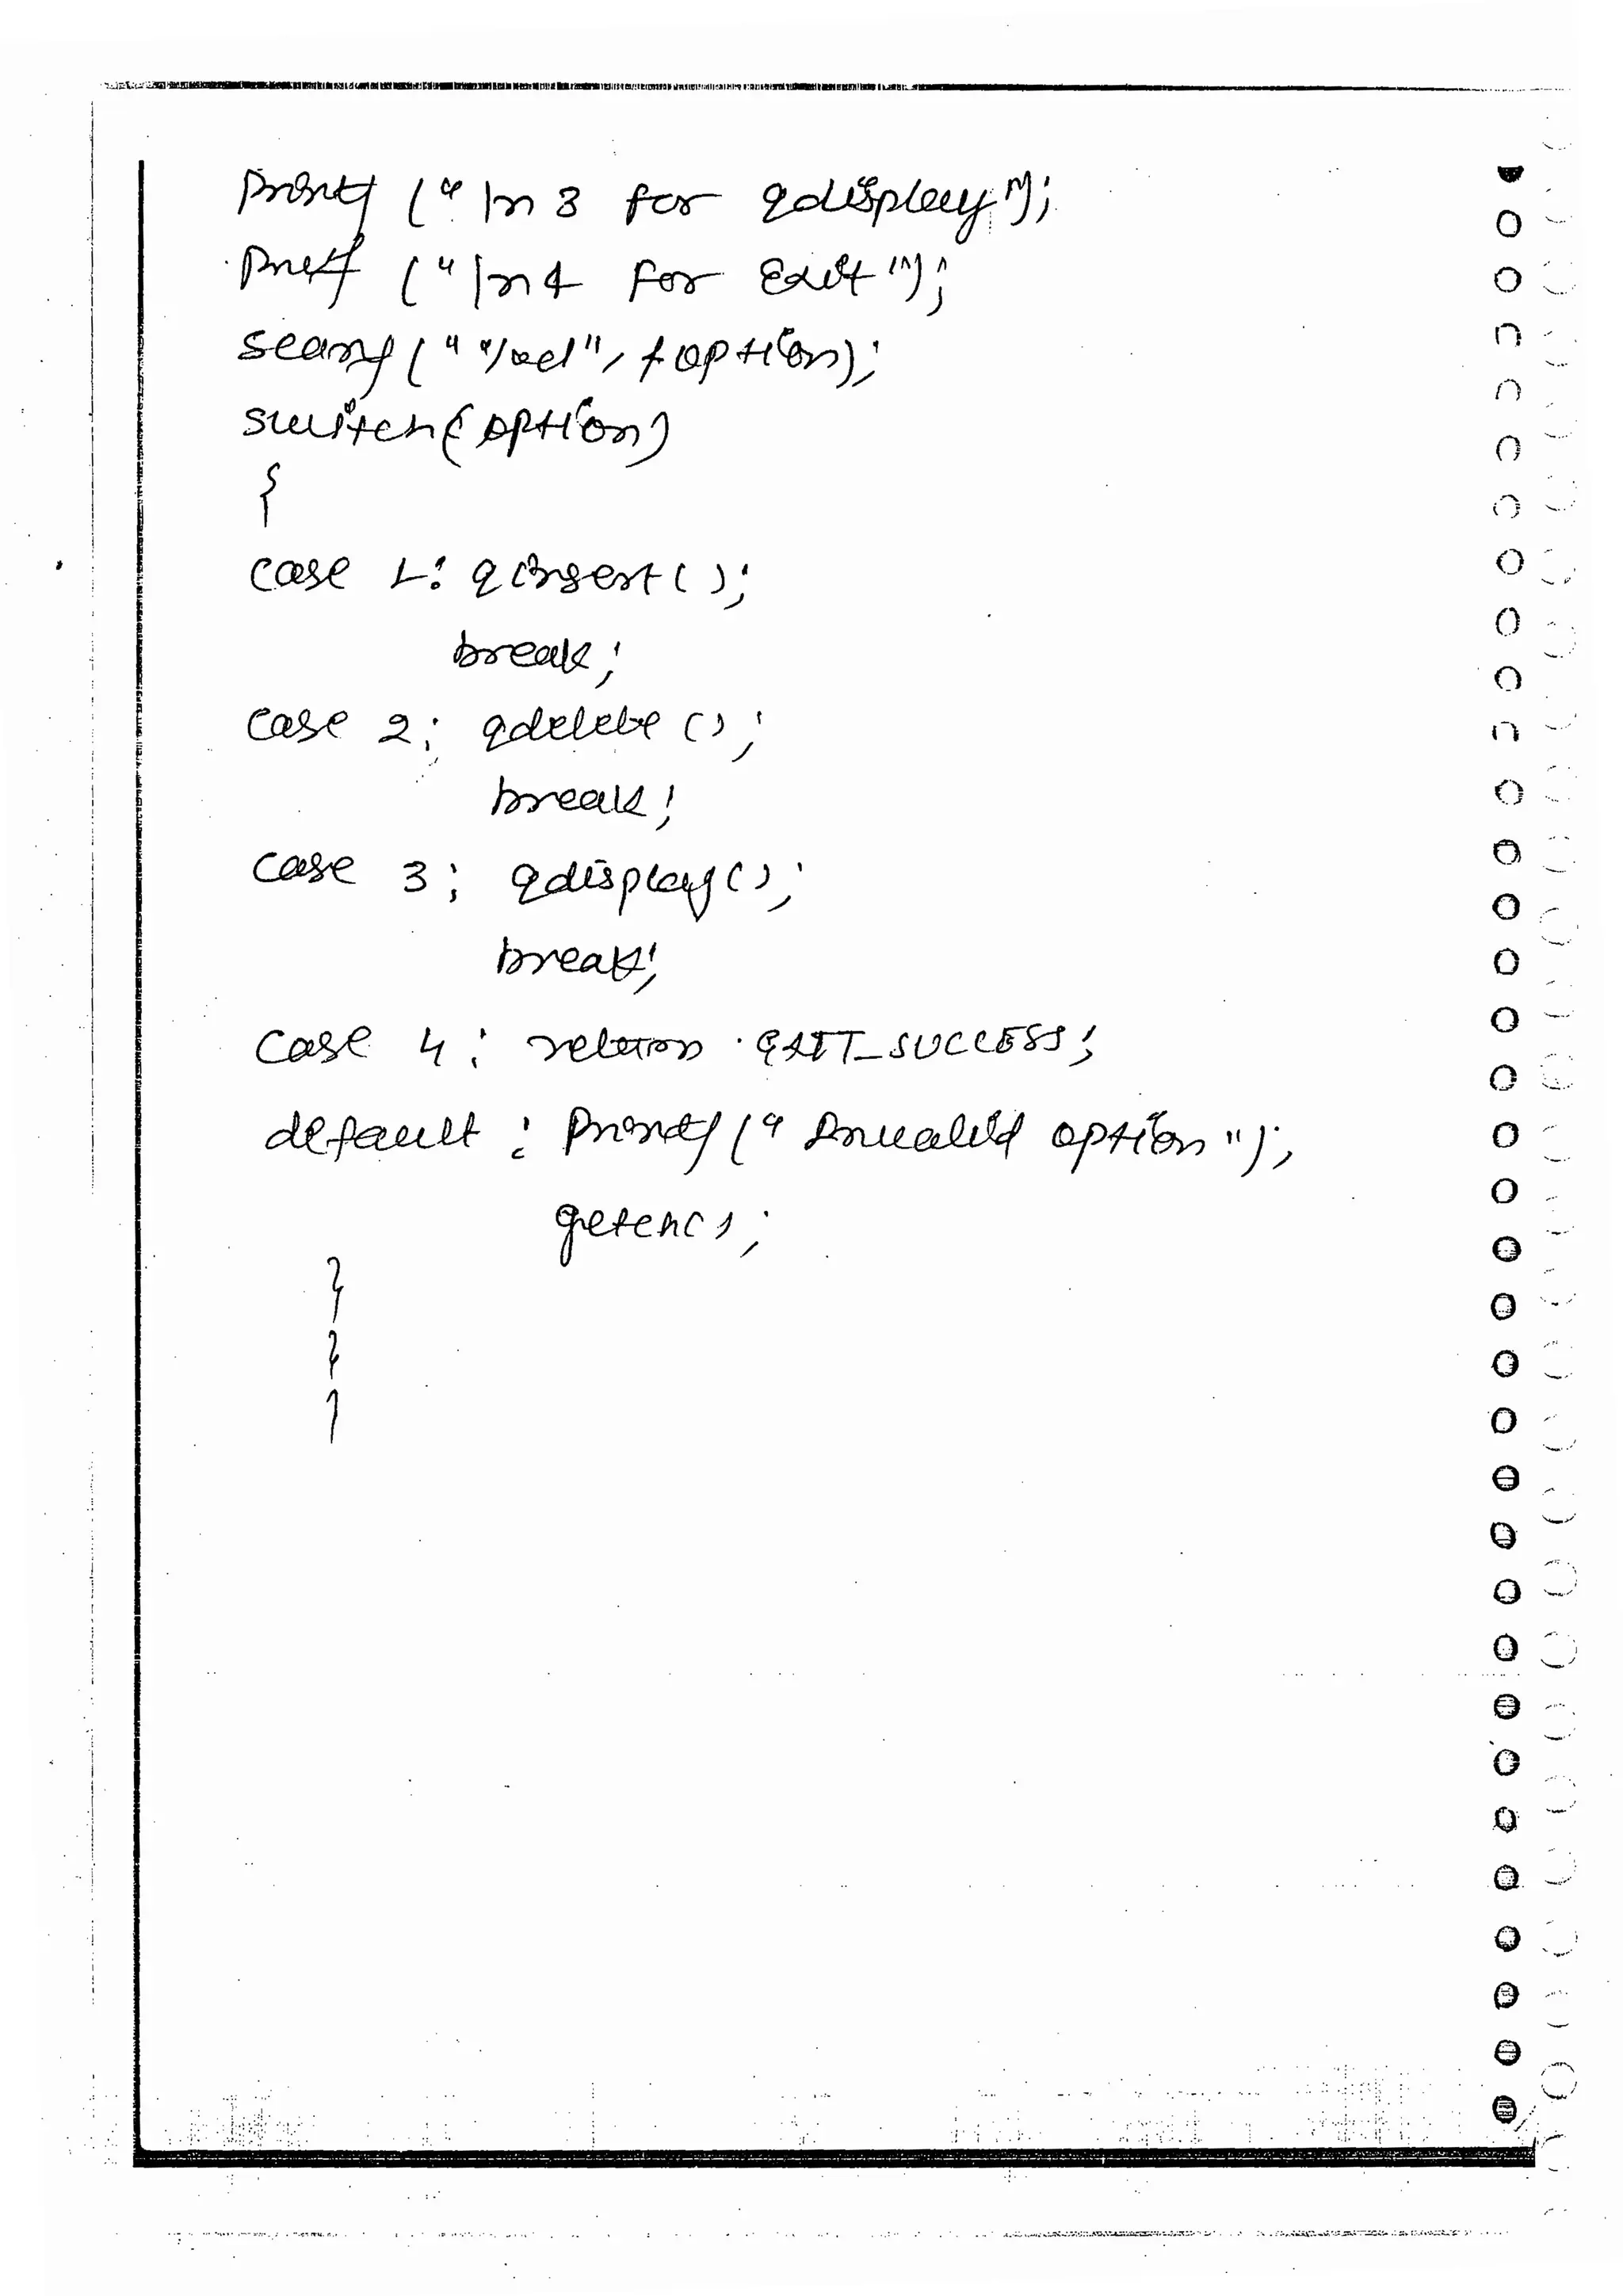 printf ("\n 3 for qdisplay");
printf ("\n 4 for Exit");
scanf ("%d", &option);
switch(option)
{
case 1: qinsert();
break;
case 2: qdelete();
break;
case 3: qdisplay();
break;
case 4: return EXIT_SUCCESS;
default: printf("Invalid option");
getch();
}
}
}